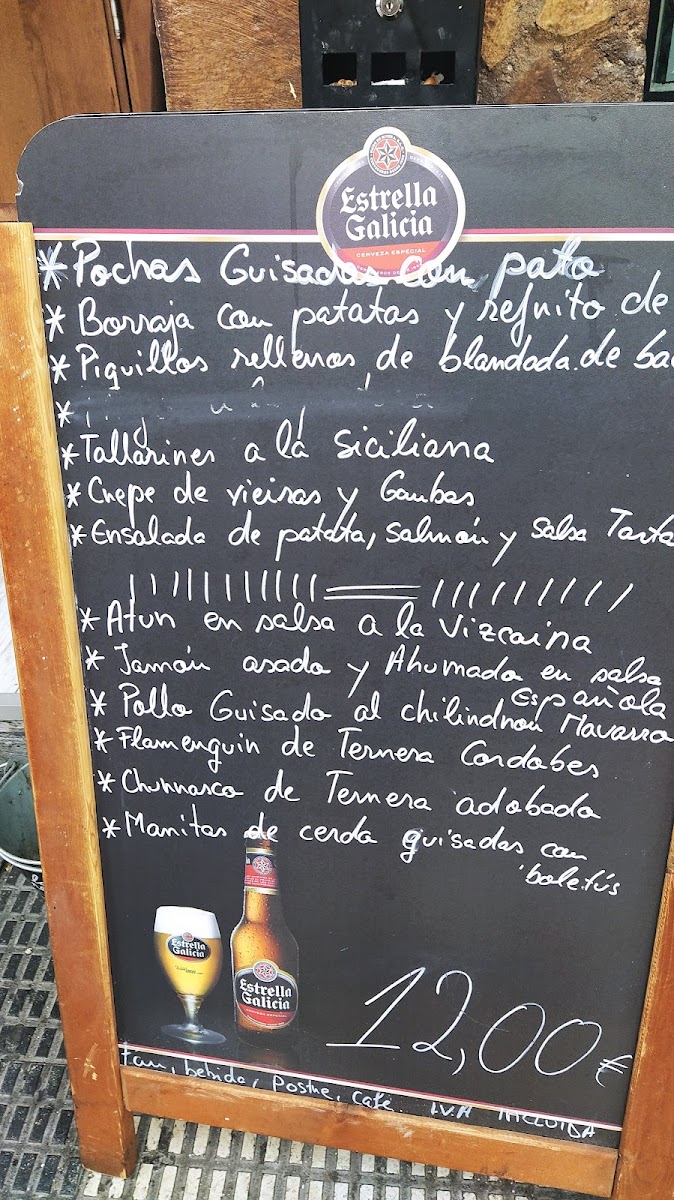 Estrella
Galicia
CERVEZA ESPECIAL
* Pochas Guisadas con pato
* Borraja con patatas y refrito de
* Piquillos rellenos de blandada de ba
*
* Tallarines a la Siciliana
* Crepe de vieiras y Gambas
* Ensalada de patata, salmón y salsa Tarta
* Atun en salsa a la Vizcaina
* Jamón asado y Ahumado en salsa
Española
* Pollo Guisado al chilindron Navarro
* Flamenquin de Ternera Cordobes
* Churrasco de Ternera adobado
* Manitas de cerdo guisadas con
boletús
Estrella
Galicia
Estrella
Galicia
CERVEZA ESPECIAL
12,00€
Pan, bebida, Postre, Cafe I.V.A INCLUIDA